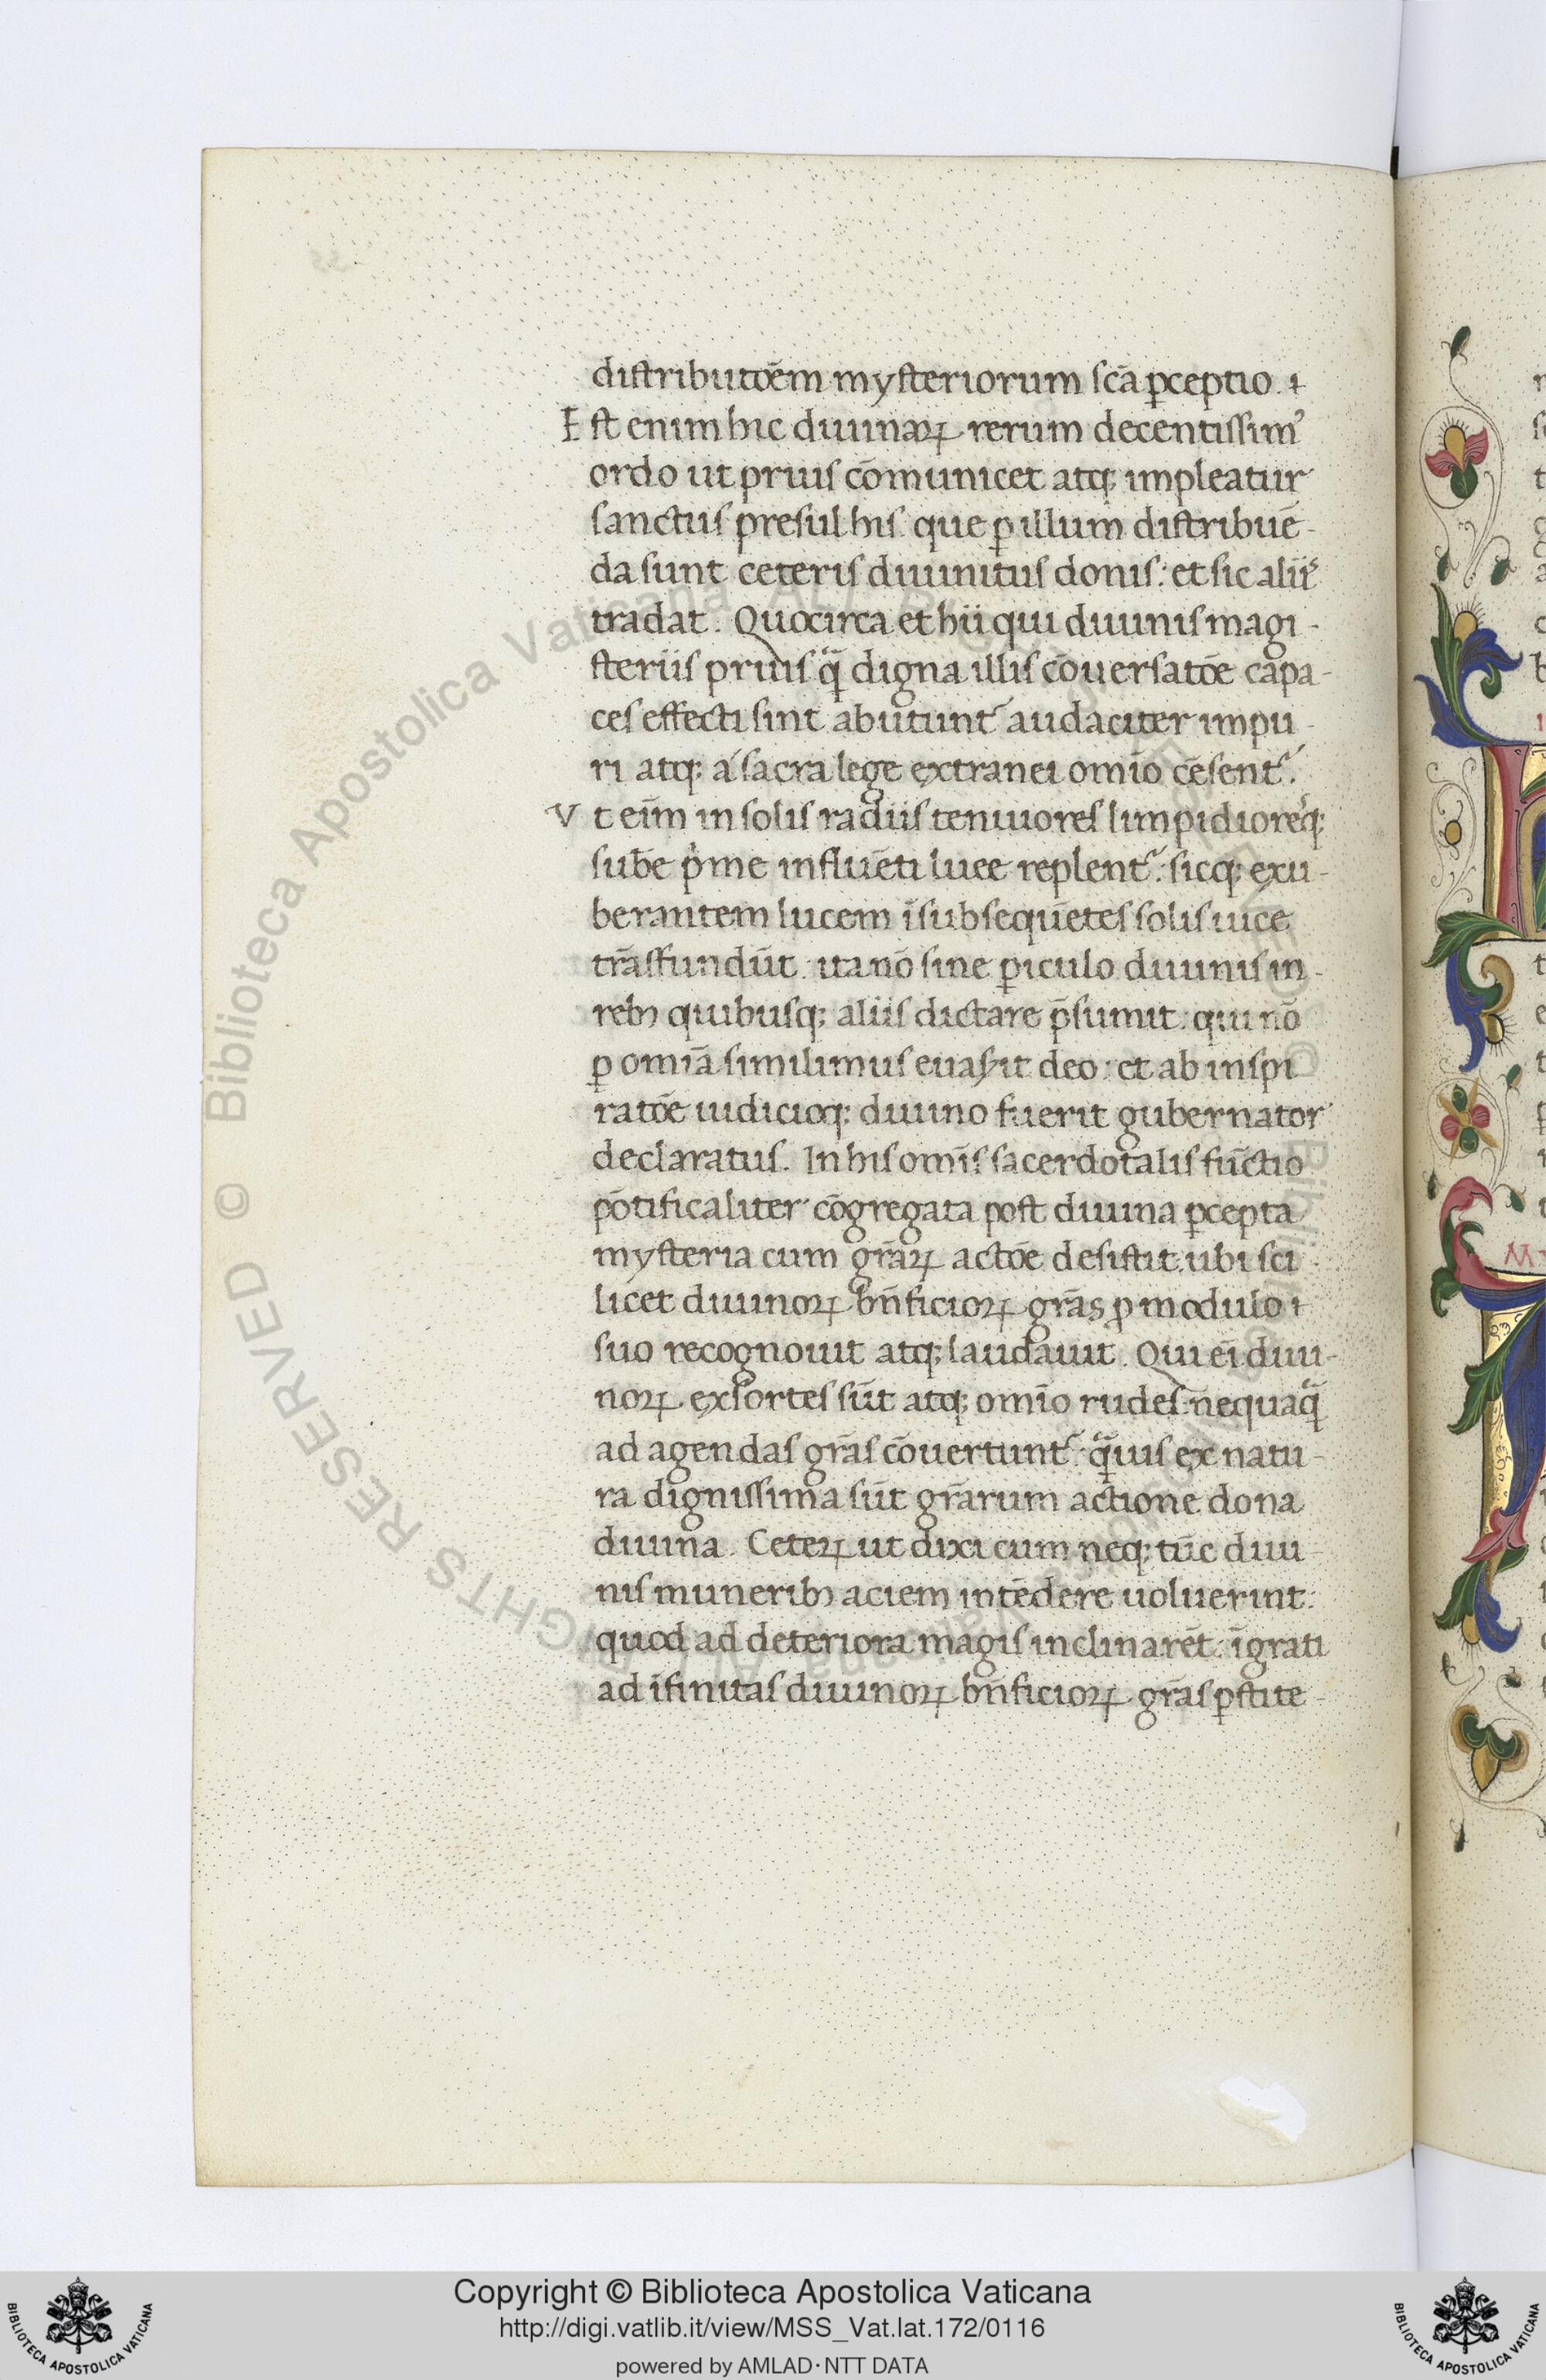 distributōem mysteriorum scā ꝑceptio.
Est enim hic diuinaꝝ rerum decentissimꝰ
ordo ut prius cōmunicet atq; impleatur
sanctus presul his que ꝑ illum distribuē-
da sunt ceteris diuinitus donis: et sic aliis
tradat. Quocirca et hii qui diuinis magi-
steriis prius q̄ digna illis cōuersatōe capa-
ces effecti sint abutunt᷑ audaciter impu-
ri atq; a sacra lege extranei omīo cēsent᷑.
Vt eīm in solis radiis tenuiores limpidioresq;
sub̄e p̍me influēti luce replent᷑: sicq; exu-
berantem lucem ī subsequētes solis uice
trāsfundūt: ita nō sine ꝑiculo diuinis in
rebꝫ quibusq; aliis dictare p̄sumit: qui nō
ꝑ omīa similimus euasit deo: et ab inspi
ratōe iudicioq; diuino fuerit gubernator
declaratus. In his omīs sacerdotalis fūctio
pōtificaliter cōgregata post diuina ꝑcepta
mysteria cum grāꝝ actōe desistit: ubi sci
licet diuinoꝝ bn̄ficioꝝ grās ꝓ modulo
suo recognouit atq; laudauit. Qui eī diui-
noꝝ exsortes sūt atq; omīo rudes: nequaq̄
ad agendas grās cōuertunt᷑: q̄uis ex natu-
ra dignissima sūt grārum actione dona
diuina. Ceteꝝ ut dixi cum neq; tūc diui-
nis muneribꝫ aciem intēdere uoluerint:
quod ad deteriora magis inclinarēt: īgrati
ad īfinitas diuinoꝝ bn̄ficioꝝ grās ꝑstite-
© Biblioteca Apostolica Vaticana
Copyright © Biblioteca Apostolica Vaticana
http://digi.vatlib.it/view/MSS_Vat.lat.172/0116
powered by AMLAD·NTT DATA
BIBLIOTECA APOSTOLICA VATICANA
BIBLIOTECA APOSTOLICA VATICANA